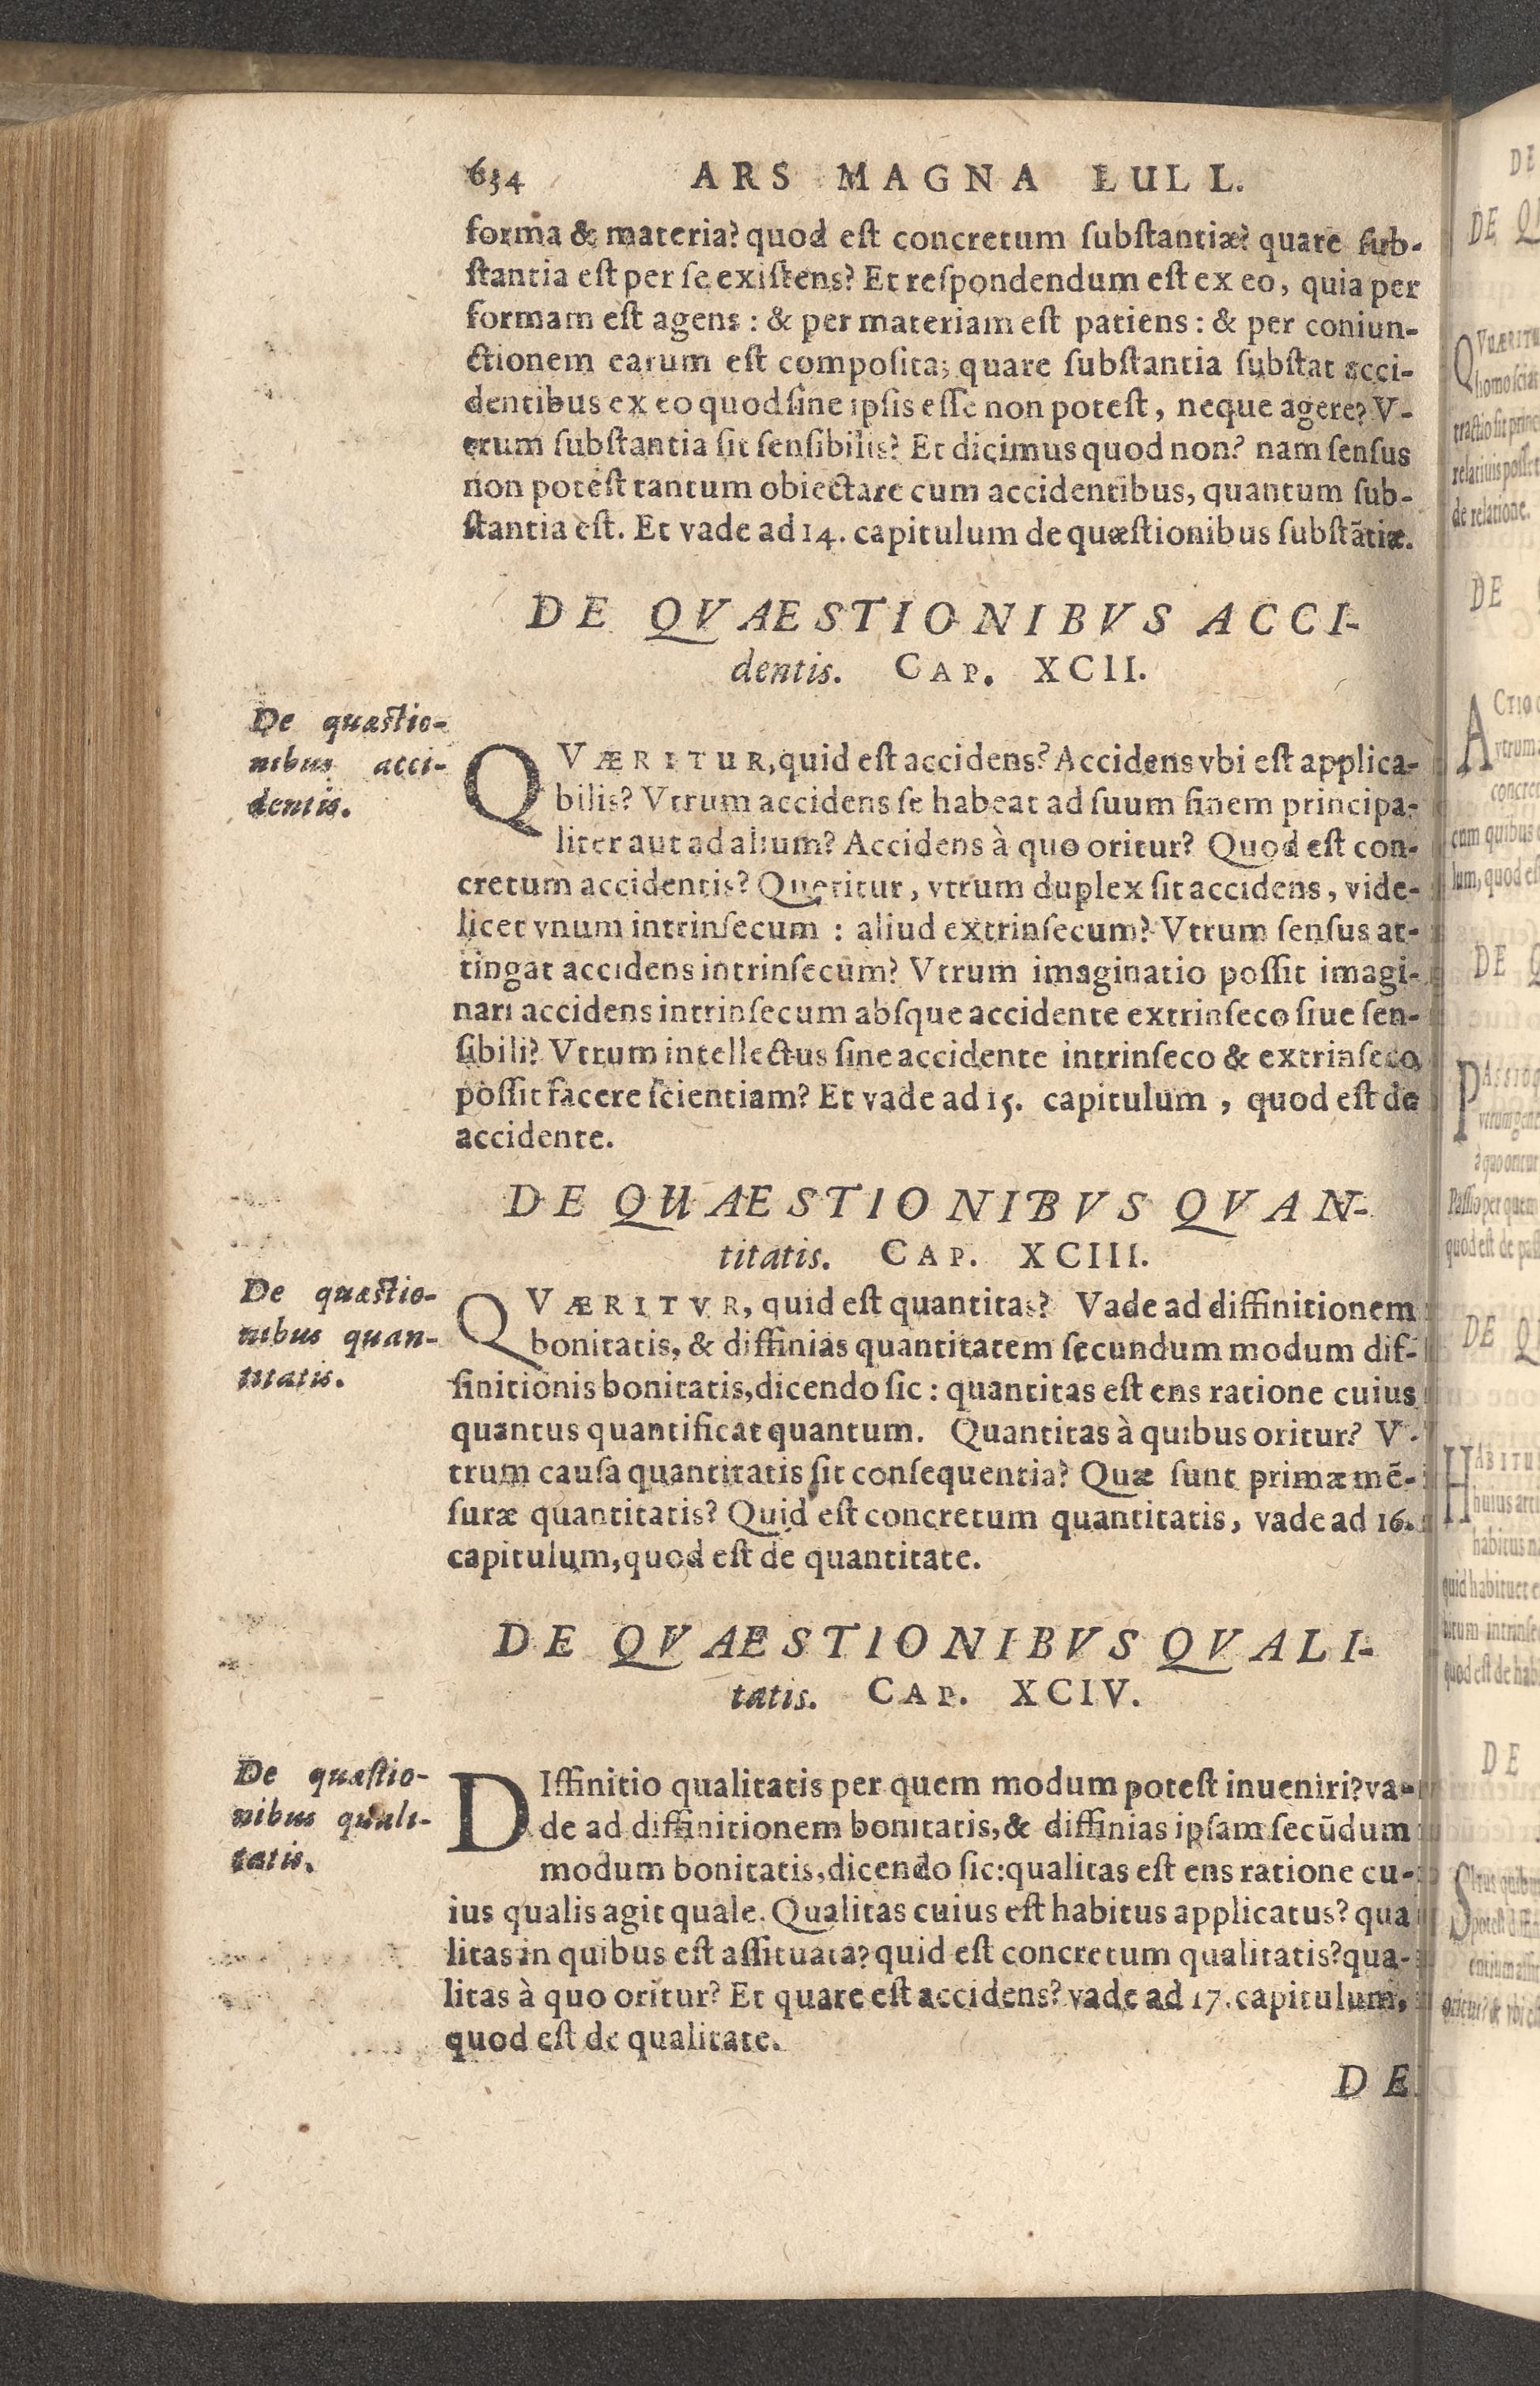 634 ARS MAGNA LULL.
forma & materia? quod est concretum substantiæ? quare sub-
stantia est per se existens? Et respondendum est ex eo, quia per
formam est agens : & per materiam est patiens : & per coniun-
ctionem earum est composita; quare substantia substat acci-
dentibus ex eo quod sine ipsis esse non potest, neque agere? V-
trum substantia sit sensibilis? Et dicimus quod non? nam sensus
non potest tantum obiectare cum accidentibus, quantum sub-
stantia est. Et vade ad 14. capitulum de quæstionibus substātiæ.
DE QVAESTIONIBVS ACCI-
dentis. CAP. XCII.
De quæstio-
nibus acci-
dentis.
QVÆRITUR, quid est accidens? Accidens vbi est applica-
bilis? Vtrum accidens se habeat ad suum finem principa-
liter aut ad alium? Accidens à quo oritur? Quod est con-
cretum accidentis? Queritur, vtrum duplex sit accidens, vide-
licet vnum intrinsecum : aliud extrinsecum? Vtrum sensus at-
tingat accidens intrinsecum? Vtrum imaginatio possit imagi-
nari accidens intrinsecum absque accidente extrinseco siue sen-
sibili? Vtrum intellectus sine accidente intrinseco & extrinseco
possit facere scientiam? Et vade ad 15. capitulum, quod est de
accidente.
DE QUAESTIONIBVS QVAN-
titatis. CAP. XCIII.
De quæstio-
nibus quan-
titatis.
QVÆRITVR, quid est quantitas? Vade ad diffinitionem
bonitatis, & diffinias quantitatem secundum modum dif-
finitionis bonitatis, dicendo sic : quantitas est ens ratione cuius
quantus quantificat quantum. Quantitas à quibus oritur? V-
trum causa quantitatis sit consequentia? Quæ sunt primæ mē-
suræ quantitatis? Quid est concretum quantitatis, vade ad 16.
capitulum, quod est de quantitate.
DE QVAESTIONIBVS QVALI-
tatis. CAP. XCIV.
De quæstio-
nibus quali-
tatis.
DIffinitio qualitatis per quem modum potest inueniri? va-
de ad diffinitionem bonitatis, & diffinias ipsam secūdum
modum bonitatis, dicendo sic: qualitas est ens ratione cu-
ius qualis agit quale. Qualitas cuius est habitus applicatus? qua
litas in quibus est assituata? quid est concretum qualitatis? qua-
litas à quo oritur? Et quare est accidens? vade ad 17. capitulum,
quod est de qualitate.
DE